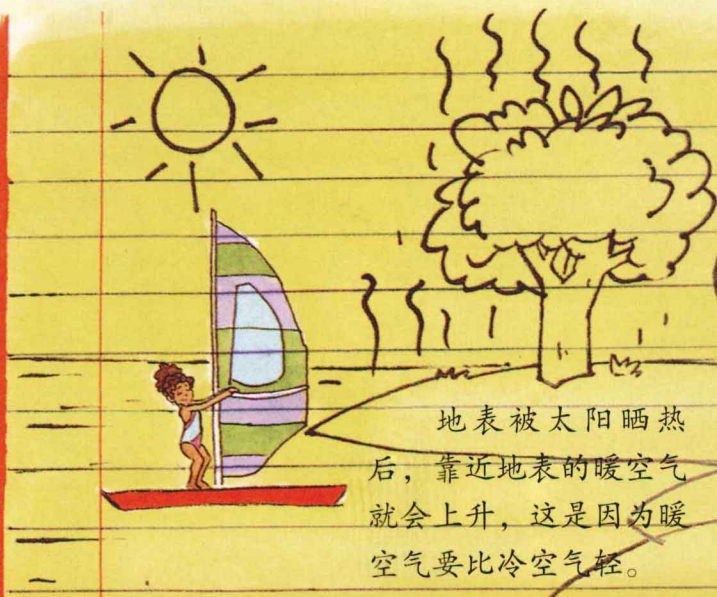 地表被太阳晒热
后，靠近地表的暖空气
就会上升，这是因为暖
空气要比冷空气轻。